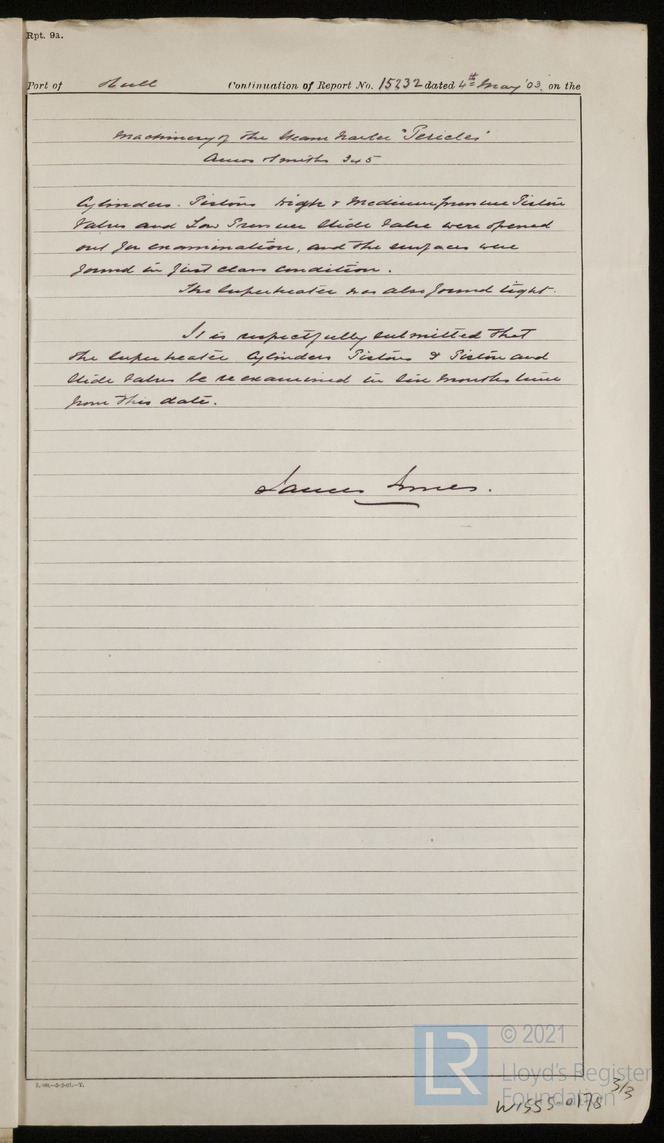 Rpt. 9a.
Port of Hull Continuation of Report No. 15232 dated 4th May '03, on the
Machinery of the Steam Trawler "Pericles"
Amos & Smith 345
Cylinders. Pistons High & Medium pressure Piston
Valves and Low Pressure Slide Valve were opened
out for examination, and the surfaces were
found in first class condition.
The Superheater was also found tight.
It is respectfully submitted that
the Superheater Cylinders Pistons & Piston and
Slide Valves be reexamined in six months time
from this date.
James Innes.
© 2021
LR
Lloyd's Register
Foundation
W1555-0178 3/3